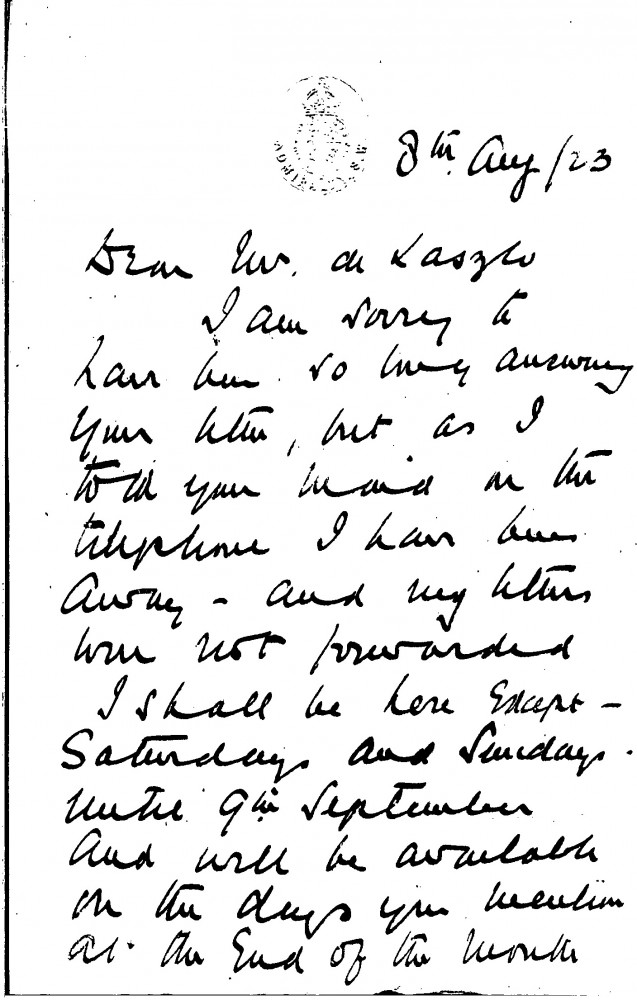 8th Aug/23
Dear Mr. de Laszlo
I am sorry to
have been so long answering
your letter, but as I
told your maid on the
telephone I have been
away - and my letters
were not forwarded
I shall be here Except -
Saturdays and Sundays.
until 9th September
and will be available
on the days you mention
at the End of the Month